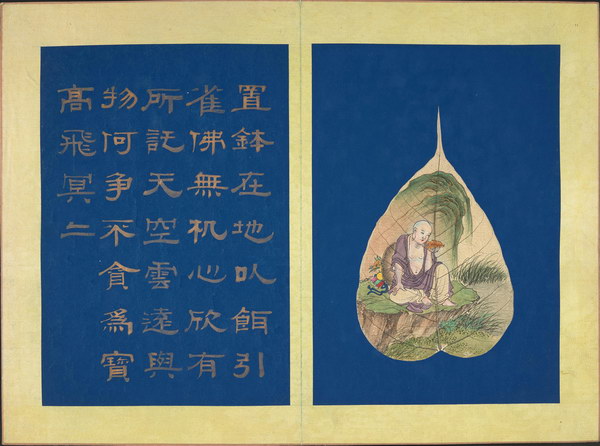 置鉢在地以餌引
雀佛無机心欣有
所託天空雲遠與
物何争不貪爲寶
高飛冥二